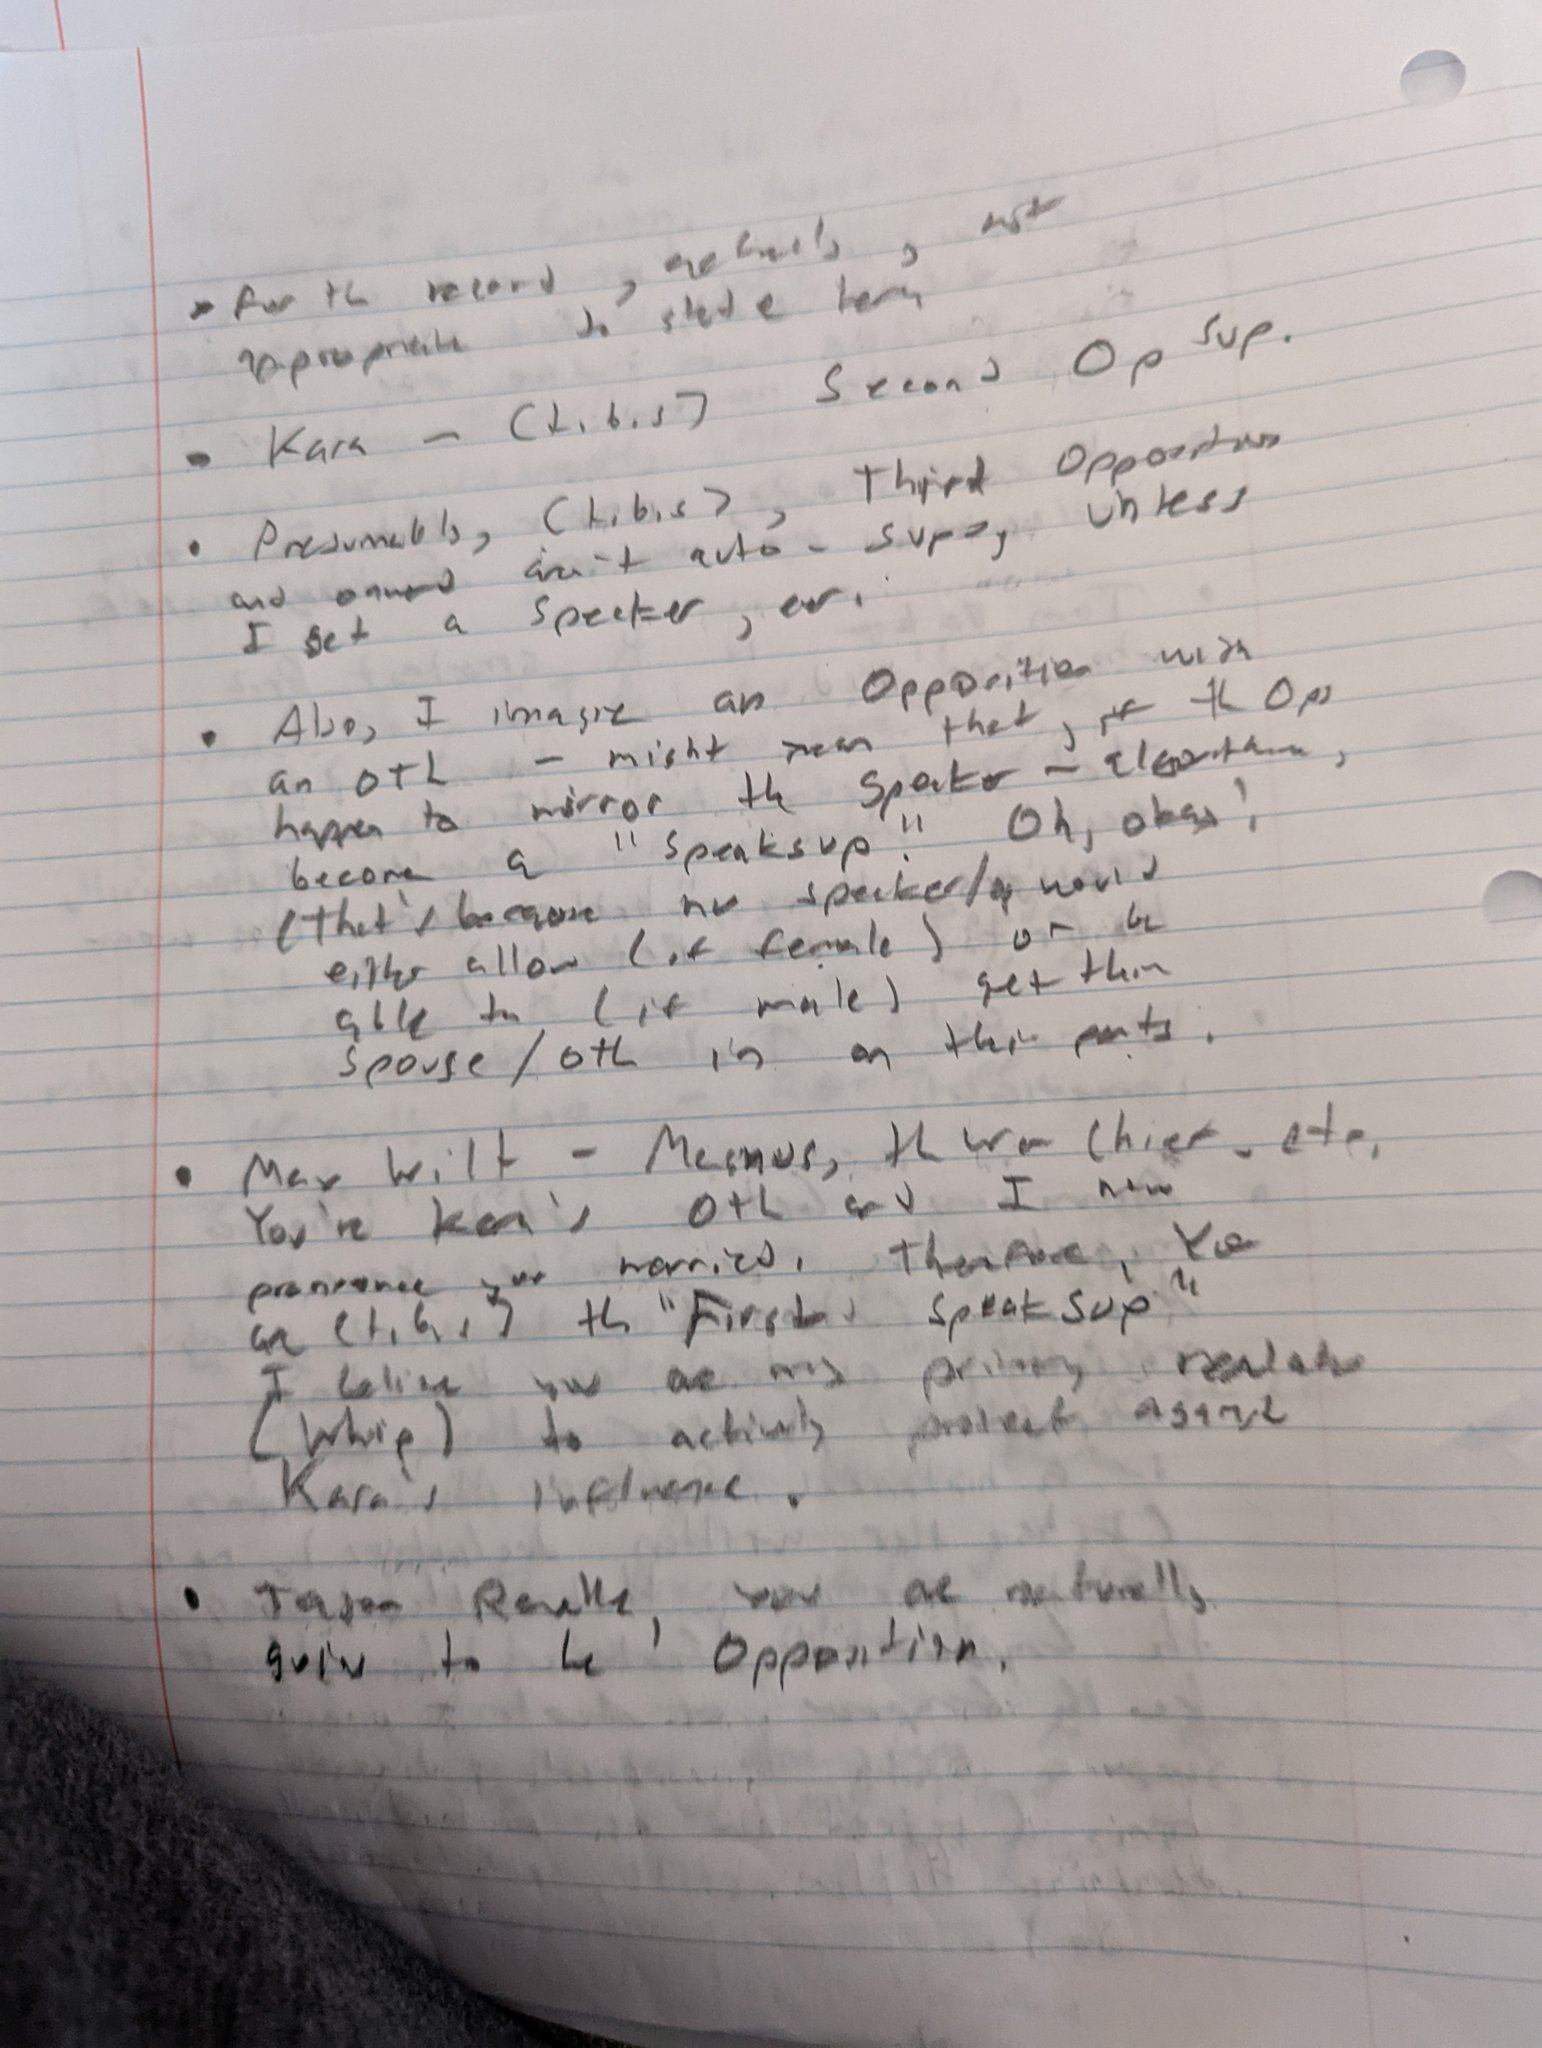 • For th record, actually, not
appropriate to state here
• Kara - (t.b.s) Second Op Sup.
• Presumably, (t.b.s), Third Opposition
and onward ain't auto-sups, unless
I get a speaker, or.
• Also, I imagine an Opposition with
an oth - might mean that, if th Ops
happen to mirror th Speaker-algorithm,
become a "speaksup". Oh, okay!
(that's because no speaker/q would
either allow (if female) or be
able to (if male) get thin
spouse/oth in on thin parts.
• Max Wilt - Magnus, th War Chief. etc.
You're Kara's oth and I now
pronounce you married. Therefore, You
are (t.b.s) th "First speaksup"
I believe you are my primary
(Whip) to actively protect against
Kara's influence.
• Jason you are naturally
going to be Opposition.